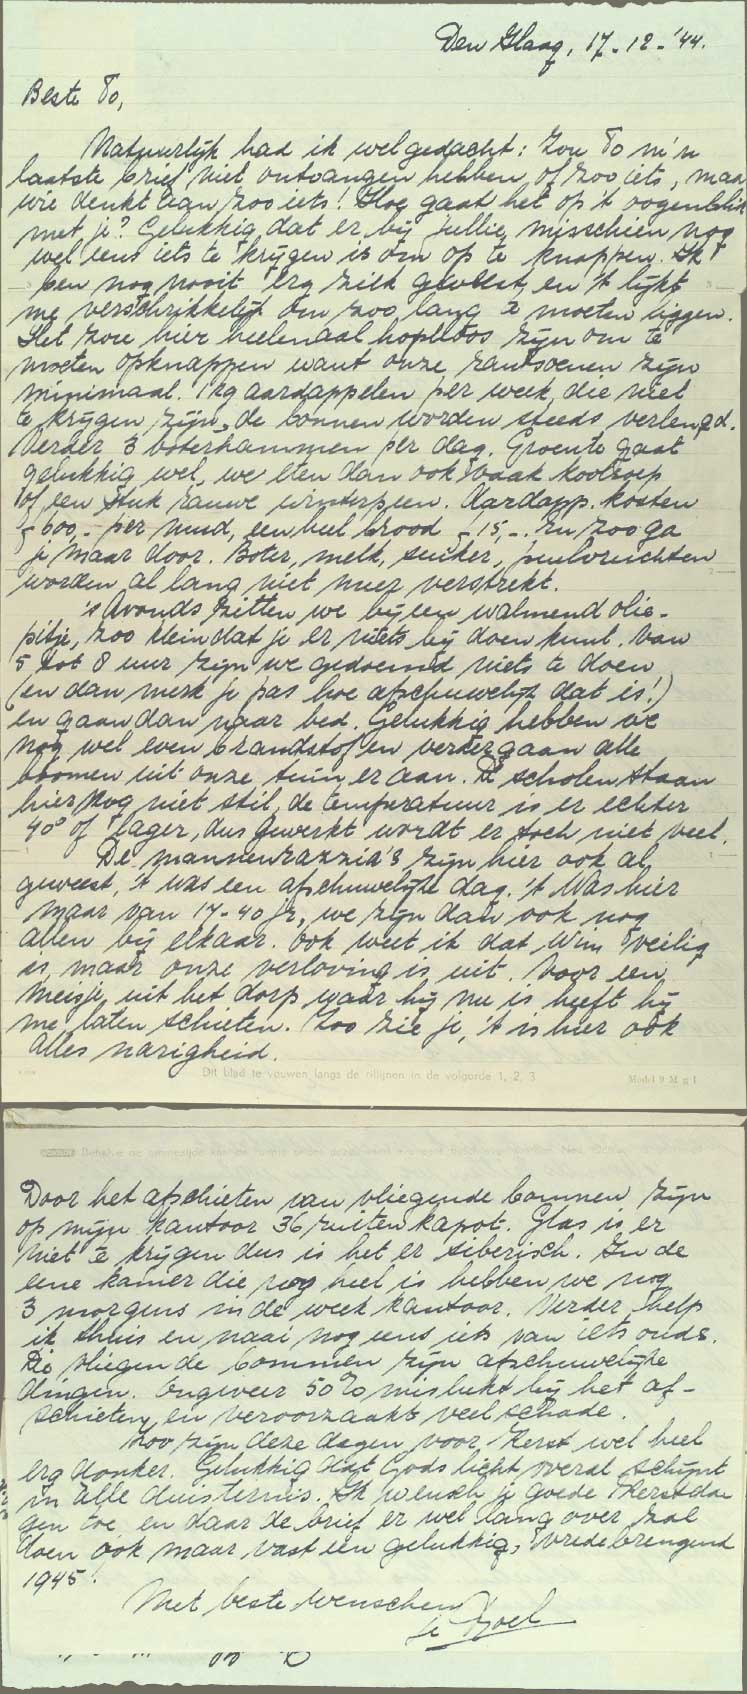 Den Haag, 17-12-'44.
Beste To,
Natuurlijk had ik wel gedacht: zou To m'n
laatste brief niet ontvangen hebben, of zoo iets, maar
wie denkt aan zoo iets! Hoe gaat het op 't oogenblik
met je? Gelukkig dat er bij jullie misschien nog
wel eens iets te krijgen is om op te knappen. Ik
ben nog nooit erg ziek geweest en 't lijkt
me verschrikkelijk om zoo lang te moeten liggen.
Het zou hier heelemaal hopeloos zijn om te
moeten opknappen want onze rantsoenen zijn
minimaal. 1 kg aardappelen per week, die niet
te krijgen zijn, de bonnen worden steeds verlengd.
Verder 3 boterhammen per dag. Groente gaat
gelukkig wel, we eten dan ook vaak koolsoep
of een stuk rauwe winterpeen. Aardapp. kosten
f 600,- per mud, een heel brood f 15,-. En zoo ga
je maar door. Boter, melk, suiker, peulvruchten
worden al lang niet meer verstrekt.
's Avonds zitten we bij een walmend olie-
pitje, zoo klein dat je er niets bij doen kunt. Van
5 tot 8 uur zijn we gedoemd niets te doen
(en dan merk je pas hoe afschuwelijk dat is!)
en gaan dan naar bed. Gelukkig hebben we
nog wel even brandstof en verder gaan alle
boomen uit onze tuin er aan. De scholen staan
hier nog niet stil, de temperatuur is er echter
40° of lager, dus gewerkt wordt er toch niet veel.
De mannenrazzia's zijn hier ook al
geweest, 't was een afschuwelijke dag. 't Was hier
maar van 17-40 jr, we zijn dan ook nog
allen bij elkaar. Ook weet ik dat Wim veilig
is, maar onze verloving is uit. Voor een
meisje uit het dorp waar hij nu is heeft hij
me laten schieten. Zoo zie je, 't is hier ook
alles narigheid.
Dit blad te vouwen langs de rillijnen in de volgorde 1, 2, 3
Model 9 M g 1
Door het afschieten van vliegende bommen zijn
op mijn kantoor 36 ruiten kapot. Glas is er
niet te krijgen dus is het er siberisch. In de
eene kamer die nog heel is hebben we nog
3 morgens in de week kantoor. Verder help
ik thuis en naai nog eens iets van iets ouds.
Die vliegende bommen zijn afschuwelijke
dingen. Ongeveer 50% mislukt bij het af-
schieten en veroorzaakt veel schade.
Zoo zijn deze dagen voor Kerst wel heel
erg donker. Gelukkig dat Gods licht overal schijnt
in alle duisternis. Ik wensch je goede Kerstda
gen toe en daar de brief er wel lang over zal
doen ook maar vast een gelukkig, vrede brengend
1945!
Met beste wenschen